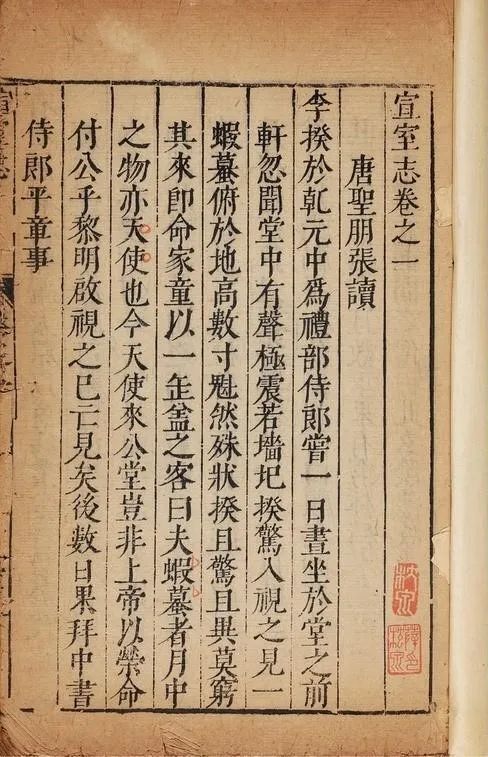 宣室志卷之一
唐聖朋張讀
李揆於乹元中爲禮部侍郎嘗一日晝坐於堂之前
軒忽聞堂中有聲極震若墻圯揆驚入視之見一
蝦蟇俯於地高數寸魁然殊狀揆且驚且異莫窮
其來即命家童以一缶盆之客曰夫蝦蟇者月中
之物亦天使也今天使來公堂豈非上帝以榮命
付公乎黎明啟視之已亡見矣後數日果拜中書
侍郎平童事